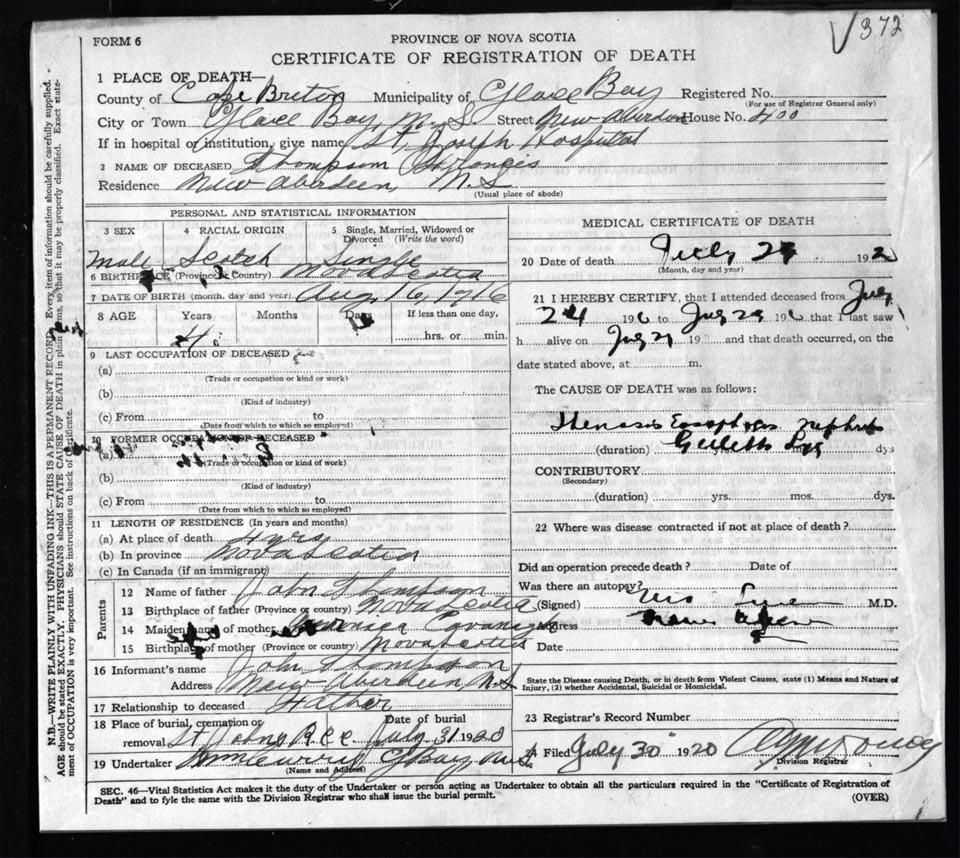 372
FORM 6
PROVINCE OF NOVA SCOTIA
CERTIFICATE OF REGISTRATION OF DEATH
1 PLACE OF DEATH—
County of Cape Breton Municipality of Glace Bay Registered No.
(For use of Registrar General only)
City or Town Glace Bay, N.S Street New Aberdeen House No. 400
If in hospital or institution, give name St. Joseph Hospital
2 NAME OF DECEASED Thompson
Residence New Aberdeen, N.S
(Usual place of abode)
PERSONAL AND STATISTICAL INFORMATION
3 SEX 4 RACIAL ORIGIN 5 Single, Married, Widowed or Divorced (Write the word)
Male Scotch Single
6 BIRTHPLACE (Province or Country) Nova Scotia
7 DATE OF BIRTH (month, day and year) Aug, 16, 1916
8 AGE Years Months Days If less than one day,
4 hrs. or min.
9 LAST OCCUPATION OF DECEASED
(a)
(Trade or occupation or kind or work)
(b)
(Kind of industry)
(c) From to
(Date from which to which so employed)
10 FORMER OCCUPATION OF DECEASED
(a)
(Trade or occupation or kind of work)
(b)
(Kind of industry)
(c) From to
(Date from which to which so employed)
11 LENGTH OF RESIDENCE (In years and months)
(a) At place of death 4 yrs
(b) In province Nova Scotia
(c) In Canada (if an immigrant)
Parents
12 Name of father John Thompson
13 Birthplace of father (Province or country) Nova Scotia
14 Maiden name of mother
15 Birthplace of mother (Province or country) Nova Scotia
16 Informant's name John Thompson
Address New Aberdeen N.S
17 Relationship to deceased Father
18 Place of burial, cremation or removal St Johns Date of burial July 31 1920
19 Undertaker G Bay N.S
(Name and Address)
MEDICAL CERTIFICATE OF DEATH
20 Date of death July 192
(Month, day and year)
21 I HEREBY CERTIFY, that I attended deceased from July
24 19 to July 29 19 that I last saw
h alive on July 19 and that death occurred, on the
date stated above, at m.
The CAUSE OF DEATH was as follows:
Stenosis
(duration) dys
CONTRIBUTORY
(Secondary)
(duration) yrs. mos. dys.
22 Where was disease contracted if not at place of death?
Did an operation precede death? Date of
Was there an autopsy?
(Signed) M.D.
Address
Date
State the Disease causing Death, or in death from Violent Causes, state (1) Means and Nature of
Injury, (2) whether Accidental, Suicidal or Homicidal.
23 Registrar's Record Number
24 Filed July 30 1920
Division Registrar
SEC. 46—Vital Statistics Act makes it the duty of the Undertaker or person acting as Undertaker to obtain all the particulars required in the "Certificate of Registration of
Death" and to fyle the same with the Division Registrar who shall issue the burial permit. (OVER)
N.B.—WRITE PLAINLY WITH UNFADING INK—THIS IS A PERMANENT RECORD. Every item of information should be carefully supplied.
AGE should be stated EXACTLY. PHYSICIANS should STATE CAUSE OF DEATH in plain terms, so that it may be properly classified. Exact statement
of OCCUPATION is very important. See instructions on back of certificate.